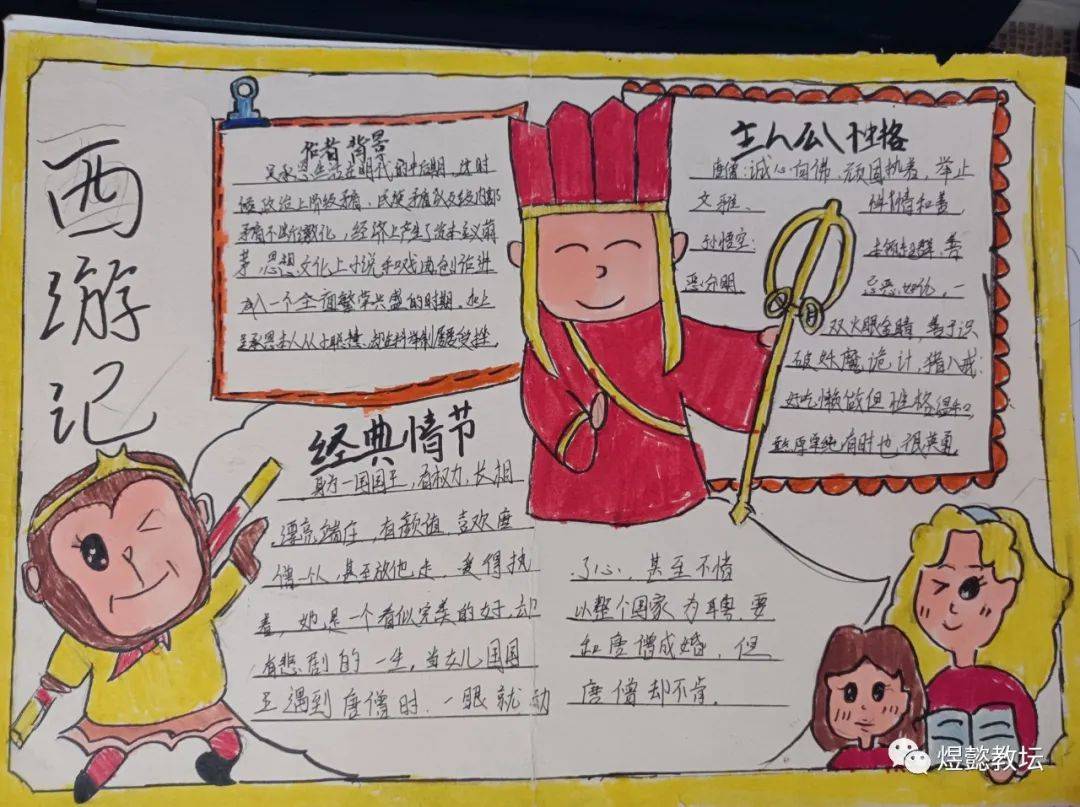 西游记
作者背景
吴承恩生活在明代的中后期,此时
候政治上阶级矛盾、民族矛盾以及统治内部
矛盾不断激化,经济上产生了资本主义萌
芽,思想文化上小说和戏曲创作进
入一个全面繁荣兴盛的时期。加上
吴承恩本人从小聪慧,却在科举制屡受挫,
主人公性格
唐僧:诚心向佛、顽固执着,举止
文雅、性情和善,
孙悟空:本领超群,善
恶分明,一
双火眼金睛,善于识
破妖魔诡计,猪八戒:
好吃懒做但性格温和
憨厚单纯有时也很英勇
经典情节
身为一国国王,有权力,长相
漂亮端庄,有颜值,喜欢唐
僧一个人,甚至放他走,爱得执
着,她是一个看似完美的好,却
有悲剧的一生,当女儿国国
王遇到唐僧时,一眼就动
了心,甚至不惜
以整个国家为聘,要
和唐僧成婚,但
唐僧却不肯.
煜懿教坛